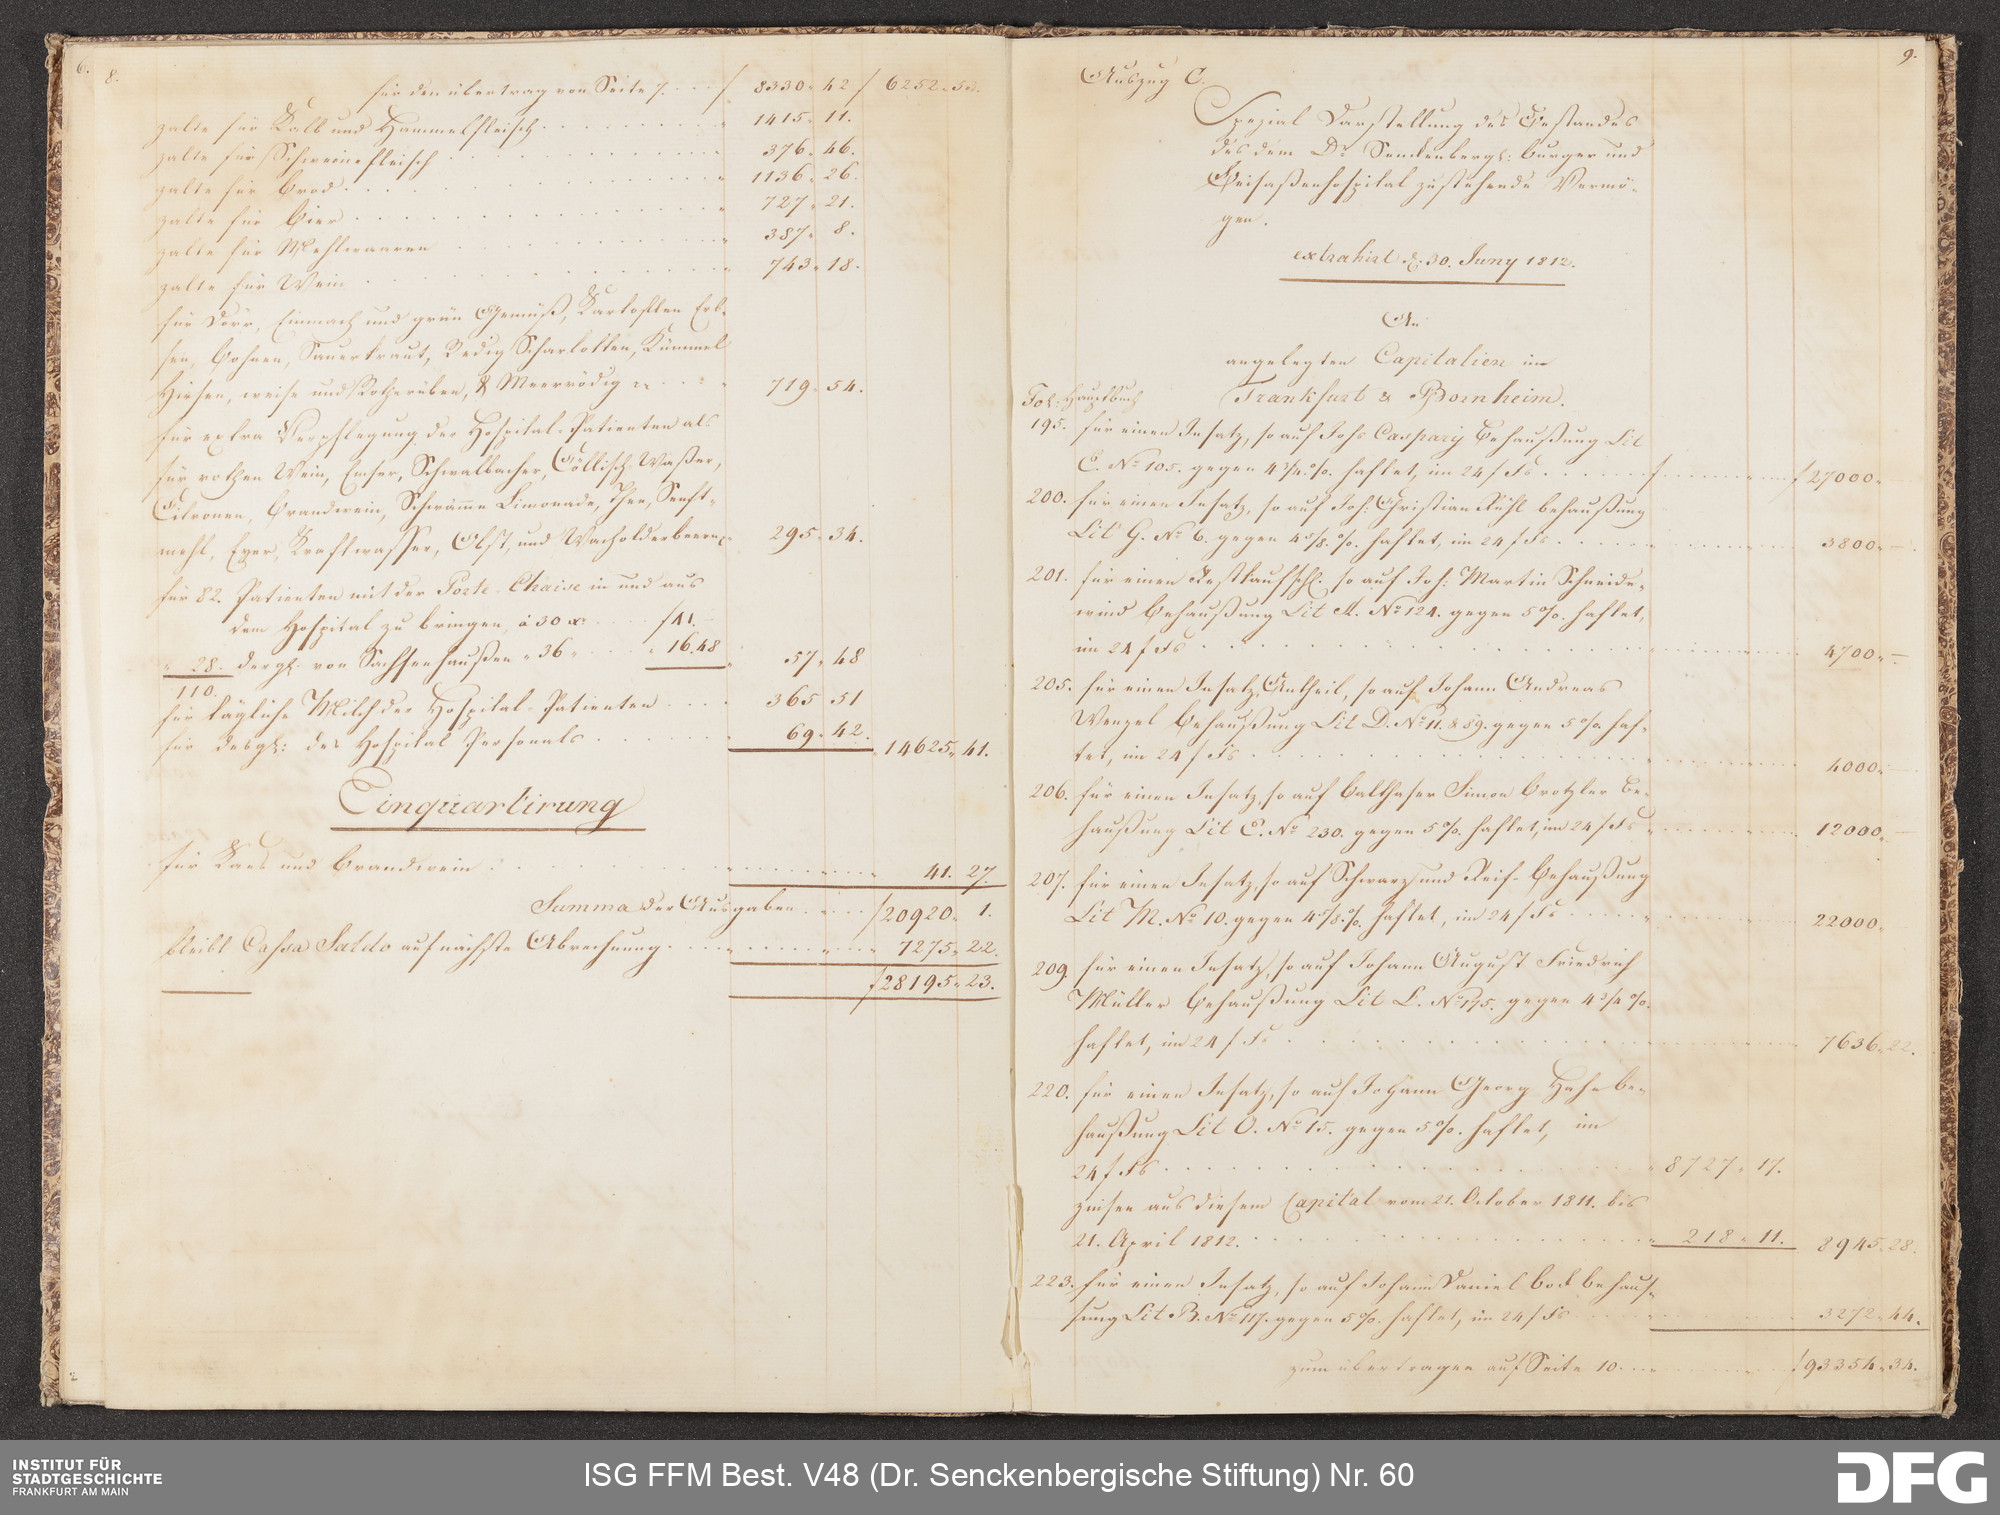 6.
8.
für den übertrag von Seite 7. . . . ƒ 8330 " 42 ƒ 6252 " 53.
zalte für Kalb und Hammelfleisch . . . . . " 1415 " 11.
zalte für Schweinefleisch . . . . . " 376 " 46.
zalte für Brod . . . . . " 1136 " 26.
zalte für Bier . . . . . " 727 " 21.
zalte für Mehlwaaren . . . . . " 387 " 8.
zalte für Wein . . . . . " 743 " 18.
für Dörr, Einmach und grün Gemüß, Kartoflen Erb-
sen, Bohnen, Sauerkraut, Redig Scharlotten, Kümmel
Hirsen, weise und Rotherüben, & Meerrödig . . . " 719 " 54.
für extra Verpflegung der Hospital-Patienten als
für rothen Wein, Emser, Schwalbacher, Cöllisch Waßer,
Citronen, Brandwein, Schwämme Limonade, Thee, Senft-
mehl, Eyer, Kraftwasser, Obst, und Wacholderbeeren " 295 " 34.
für 82. Patienten mit der Porte-Chaise in und aus
dem Hospital zu bringen, à 30 x. . . . ƒ 41. —
" 28. dergl. von Sachsenhaußen " 36 " . . . " 16.48 " 57 " 48
110.
für tägliche Milch der Hospital-Patienten . . . . 365 " 51
für desgl: des Hospital Personals . . . . . " 69 " 42. " 14625 " 41.
Einquartirung
für Kaes und Brandwein . . . . . " 41. 27.
Summa der Ausgaben . . . . ƒ 20920 " 1.
bleibt Cassa Saldo auf nächste Abrechnung . . . . " 7275 " 22.
ƒ 28195 " 23.
2
9.
Auszug C.
Spezial Darstellung des Bestandes
des dem Dr. Senckenbergl: Burger und
Beisaßenhospital zustehende Vermö-
gen.
extrahirt d. 30. Juny 1812.
An
angelegten Capitalien in
Fol: Hauptbuch Frankfurt & Bornheim.
195. für einen Insatz, so auf Johs Caspary Behaußung Lit
C. No 105. gegen 4 3/4 %. haftet, im 24 ƒ Fs . . . . ƒ . . . ƒ 27000 "
200. für einen Insatz, so auf Joh: Christian Rühl behaußung
Lit G. No 6. gegen 4 5/8. %. haftet, im 24 ƒ Fs . . . . . 3800 " —.
201. für einen Restkaufschl: so auf Joh: Martin Schneide-
wind Behaußung Lit A. No 124. gegen 5 %. haftet,
im 24 ƒ Fs . . . . . 4700 " —
205. für einen Insatz, Antheil, so auf Johann Andreas
Wenzel Behaußung Lit D. No 11. & 89. gegen 5 %. haf-
tet, im 24 ƒ Fs . . . . . 4000 " —.
206. für einen Insatz, so auf Balthaser Simon Brotzler Be-
haußung Lit C. No 230. gegen 5 %. haftet, im 24 ƒ Fs " . . . . 12000 " —
207. für einen Insatz, so auf Schwarz und Reif-Behaußung
Lit M. No 10. gegen 4 5/8 %. haftet, im 24 ƒ Fs . . . . . 22000 "
209. für einen Insatz, so auf Johann August Friedrich
Müller Behaußung Lit L. No 175. gegen 4 3/4 %.
haftet, im 24 ƒ Fs . . . . . 7636 " 22.
220. für einen Insatz, so auf Johann Georg Hahn be-
haußung Lit O. No 15. gegen 5 %. haftet, im
24 ƒ Fs . . . . . " 8727 " 17.
zinsen aus diesem Capital vom 21. October 1811. bis
21. April 1812. . . . . . " 218 " 11. 8945 " 28.
223. für einen Insatz, so auf Johann Daniel Bock behaus-
sung Lit B. No 117. gegen 5 %. haftet, im 24 ƒ Fs . . . . . 3272 " 44.
zum übertragen auf Seite 10. . . . . ƒ 93354 " 34.
INSTITUT FÜR
STADTGESCHICHTE
FRANKFURT AM MAIN
ISG FFM Best. V48 (Dr. Senckenbergische Stiftung) Nr. 60
DFG